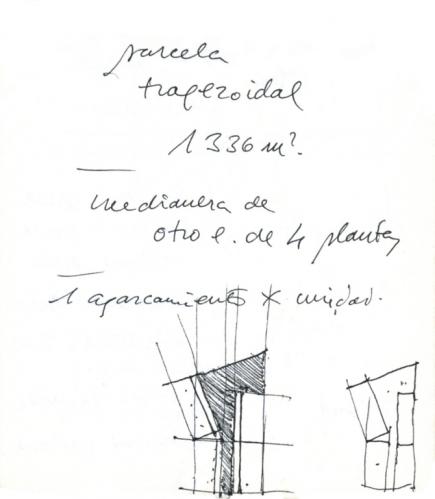 parcela
trapezoidal
1336 m².
medianera de
otro e. de 4 plantas
1 aparcamiento x unidad.